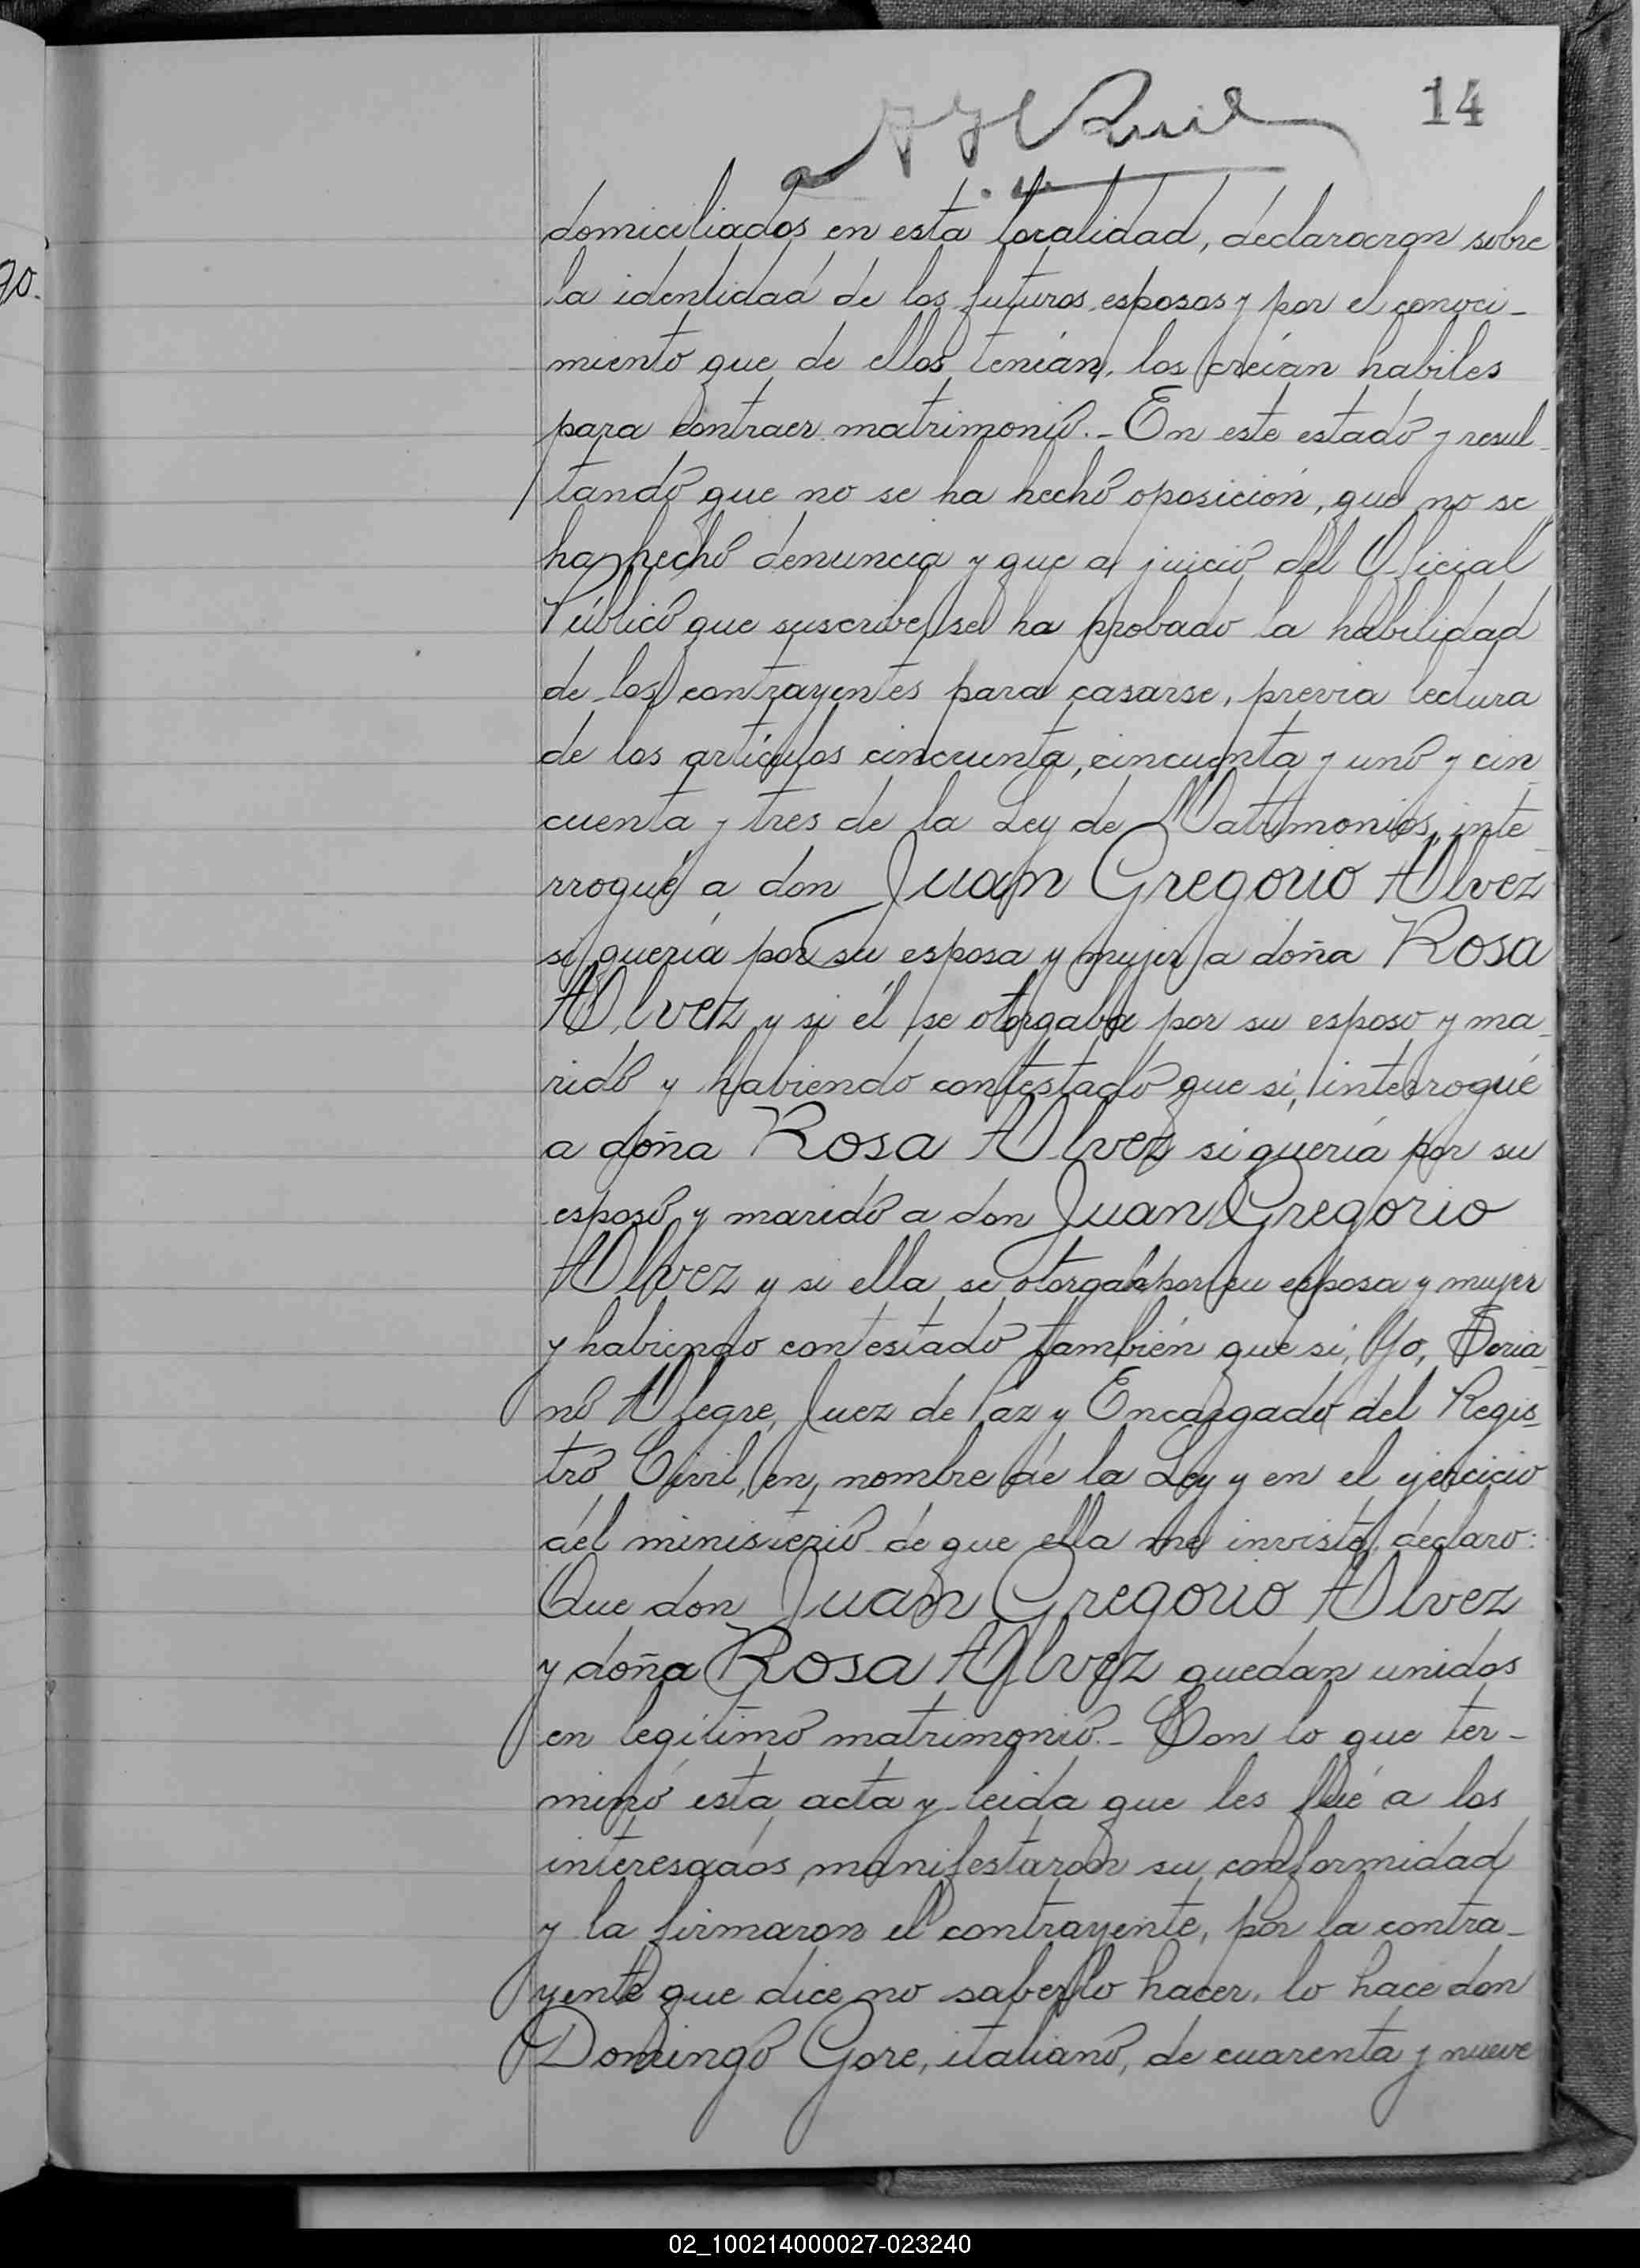 14
domiciliados en esta localidad, declararon sobre
la identidad de los futuros esposos y por el conoci-
miento que de ellos tenían, los creían habiles
para contraer matrimonio.- En este estado y resul-
tando que no se ha hecho oposición, que no se
ha hecho denuncia y que a juicio del Oficial
Público que suscribe, se ha probado la habilidad
de los contrayentes para casarse, previa lectura
de los artículos cincuenta, cincuenta y uno y cin-
cuenta y tres de la Ley de Matrimonios, inte-
rrogué a don Juan Gregorio Alvez
si quería por su esposa y mujer a doña Rosa
Alvez y si él se otorgaba por su esposo y ma-
rido y habiendo contestado que si, interrogué
a doña Rosa Alvez si quería por su
esposo y marido a don Juan Gregorio
Alvez y si ella se otorgaba por su esposa y mujer
y habiendo contestado también que si, Yo, Soria-
no Alegre, Juez de Paz y Encargado del Regis-
tro Civil, en nombre de la Ley y en el ejercicio
del ministerio de que ella me inviste, declaro:
Que don Juan Gregorio Alvez
y doña Rosa Alvez quedan unidos
en legítimo matrimonio.- Con lo que ter-
minó esta acta y leida que les fué a los
interesados manifestaron su conformidad
y la firmaron el contrayente, por la contra-
yente que dice no saberlo hacer, lo hace don
Domingo Gore, italiano, de cuarenta y nueve
02_100214000027-023240